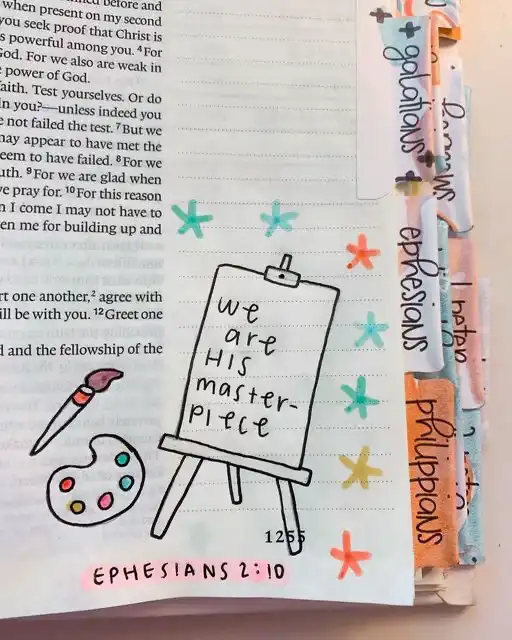 when present on my second
you seek proof that Christ is
s powerful among you. ⁴For
God. For we also are weak in
power of God.
faith. Test yourselves. Or do
in you?—unless indeed you
e not failed the test. ⁷But we
may appear to have met the
eem to have failed. ⁸For we
uth. ⁹For we are glad when
ve pray for. ¹⁰For this reason
n I come I may not have to
en me for building up and
rt one another,² agree with
ill be with you. ¹²Greet one
d and the fellowship of the
we
are
HIS
master-
piece
1255
EPHESIANS 2:10
galatians
ephesians
philippians